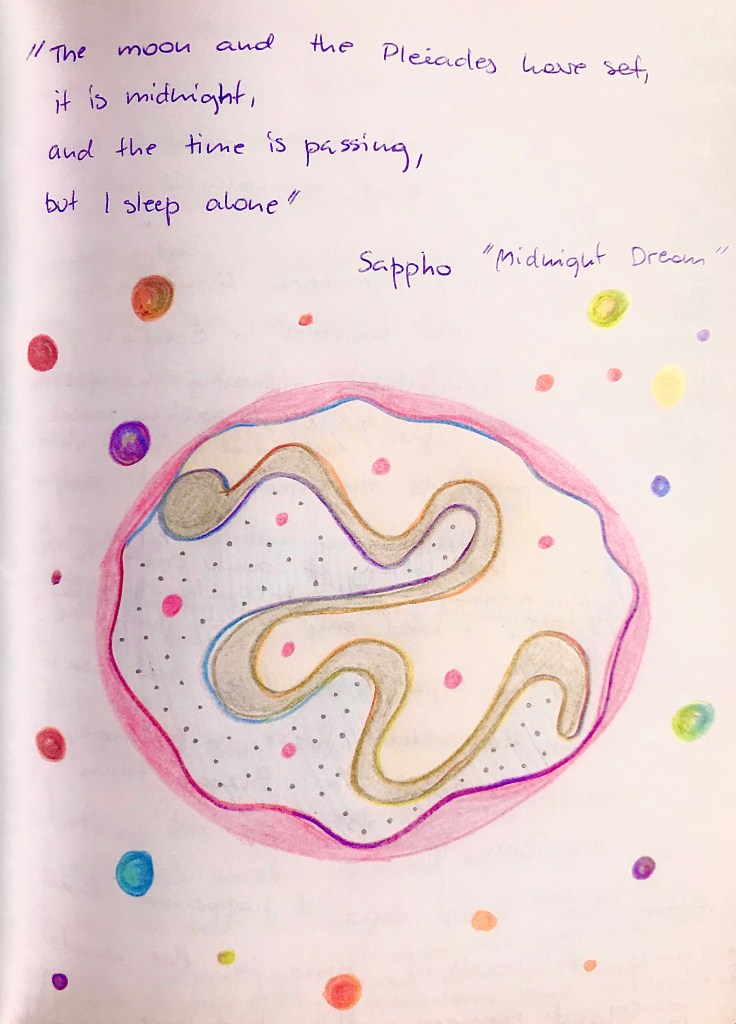 "The moon and the Pleiades have set,
it is midnight,
and the time is passing,
but I sleep alone"
Sappho "Midnight Dream"